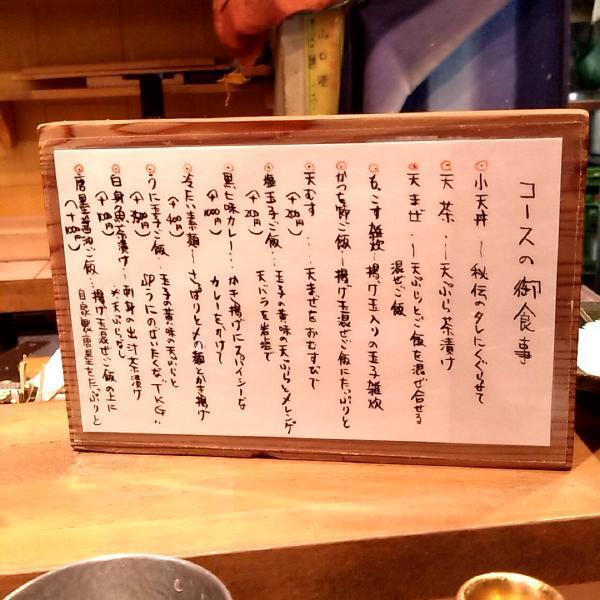 コースの御食事
小天丼 ― 秘伝のタレにくぐらせて
天茶 … 天ぷら茶漬け
天まぜ … 天ぷらとご飯を混ぜ合せる
混ぜご飯
もこす雑炊 ― 揚げ玉入りの玉子雑炊
かつを節ご飯 ― 揚げ玉混ぜご飯にたっぷりと
天むす … 天まぜをおむすびで
(+200円)
塩玉子ご飯 … 玉子の黄味の天ぷらとメレンゲ
(+200円)
天バラを岩塩で
黒七味カレー … かき揚げにスパイシーな
(+1000円)
カレーをかけて
冷たい素麺 ― さっぱりと〆の麺とかき揚げ
(+400円)
うに玉子ご飯 … 玉子の黄味の天ぷらと
生うにのぜいたくな“TKG„
白身魚茶漬け … 刺身の出汁茶漬け
※天ぷらなし
唐墨醤油ご飯 … 揚げ玉混ぜご飯の上に
自家製唐墨をたっぷりと
山口港